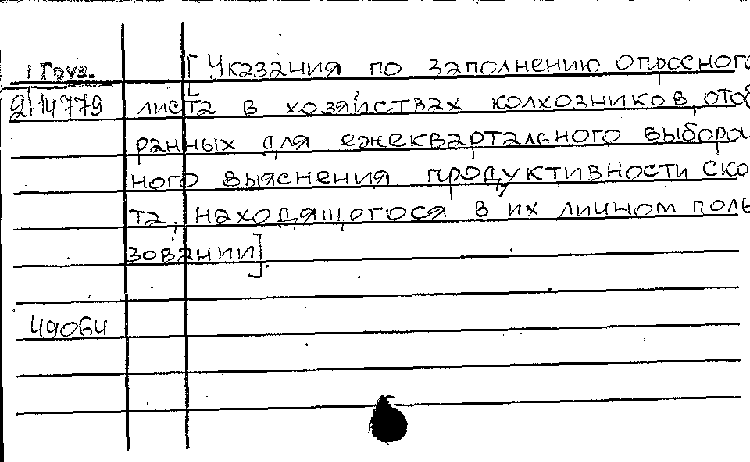 1 Груз. [Указания по заполнению опросного
2/14779 листа в хозяйствах колхозников, отоб
ранных для ежеквартального выбороч
ного выяснения продуктивности ско
та, находящегося в их личном поль
зовании].
49064